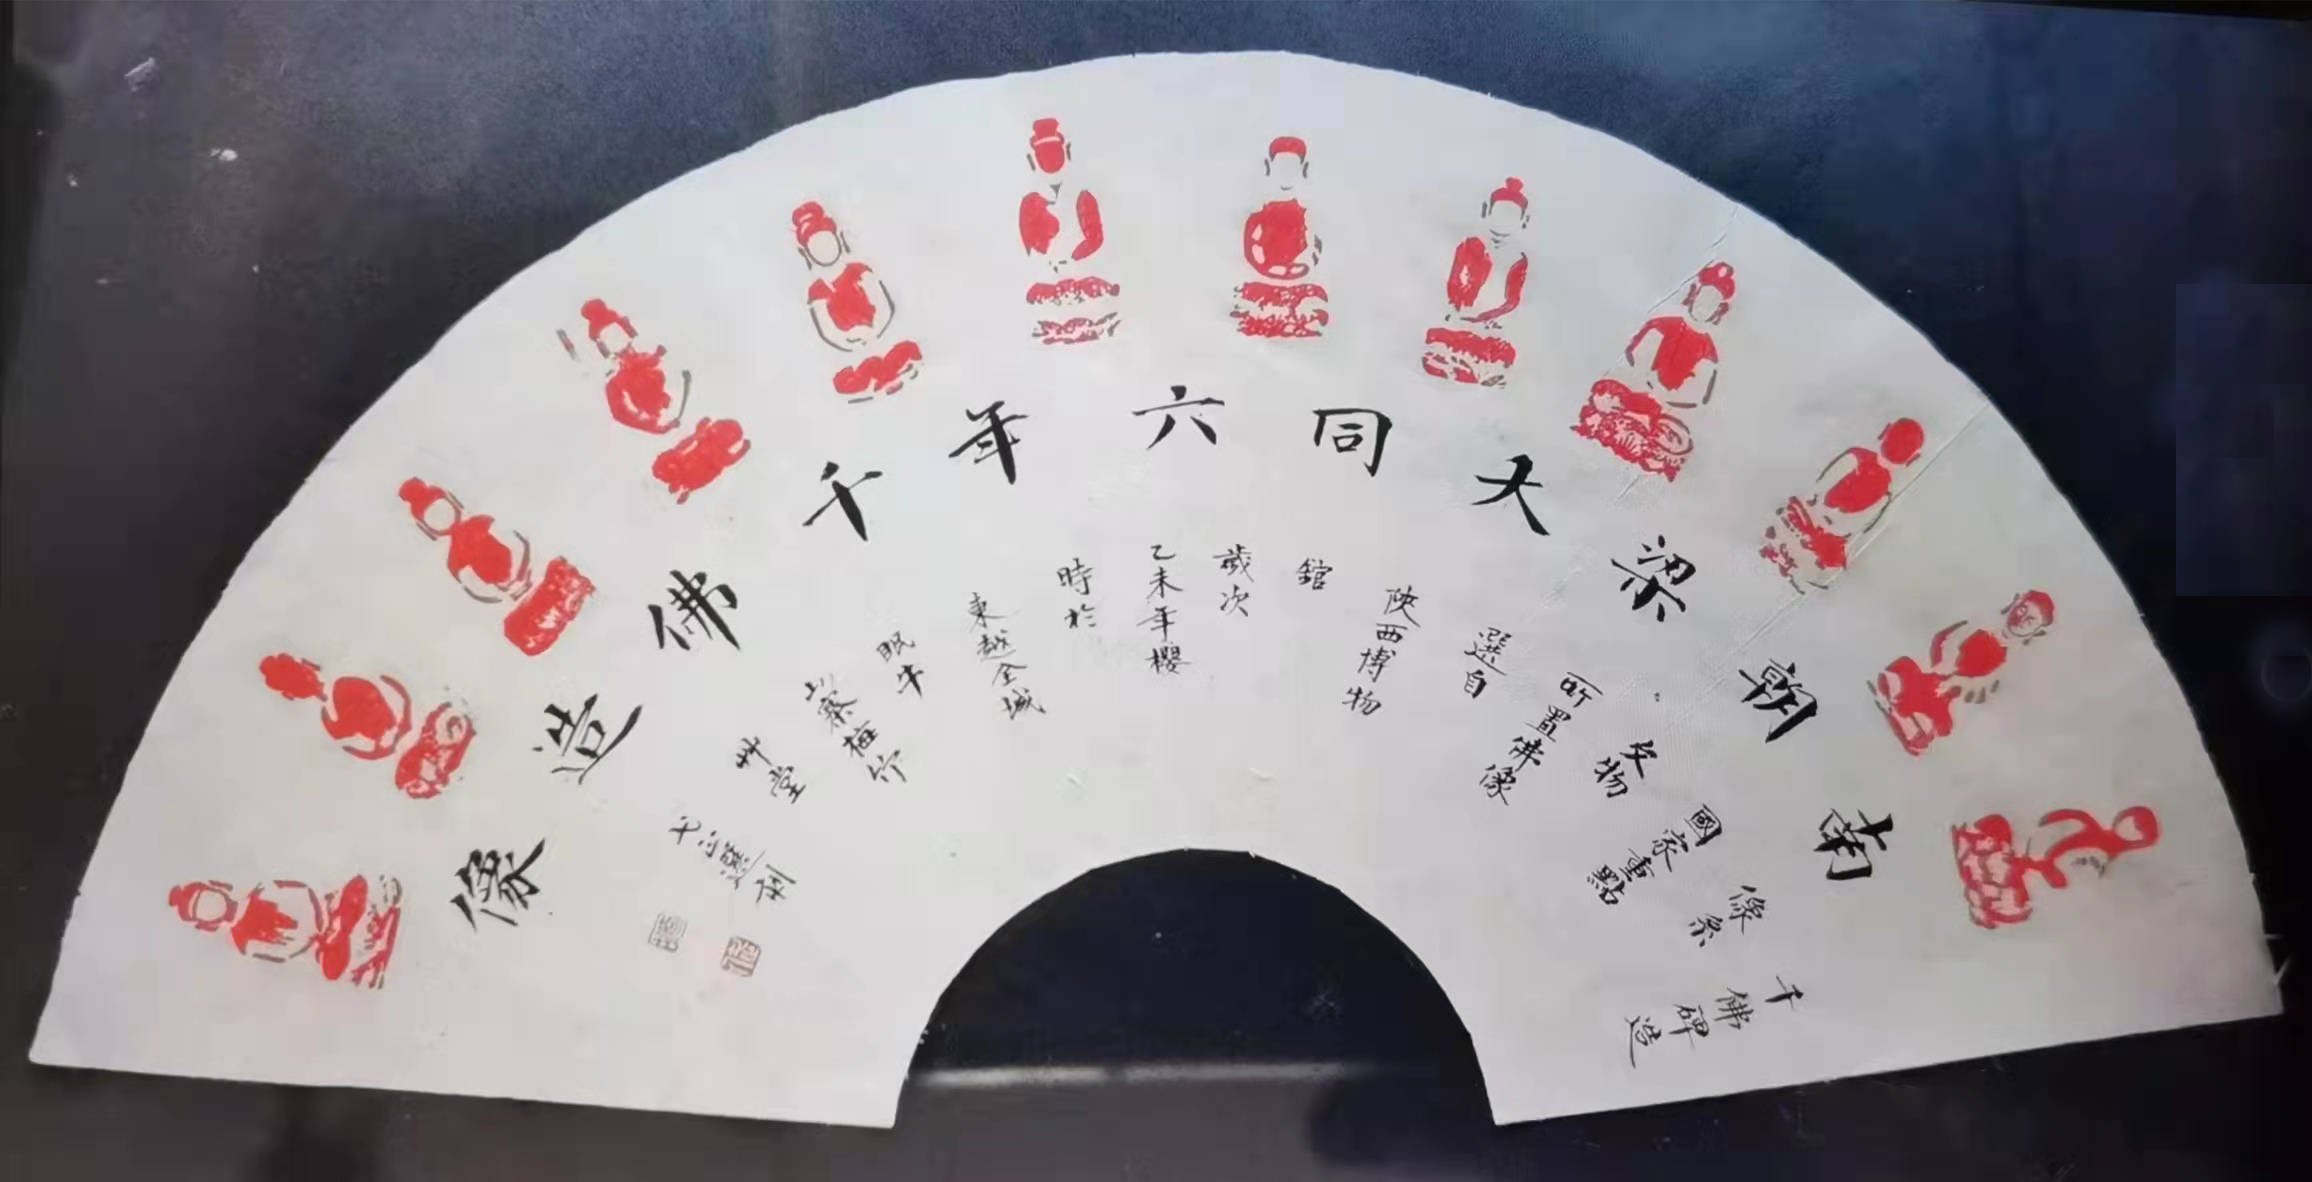 南朝梁大同六年千佛造像
千佛碑造
像系
國家重點
文物
所置佛像
選自
陝西博物
館
歲次
乙未年櫻
時於
東越全城
眠牛
山寮梅竹
艸堂